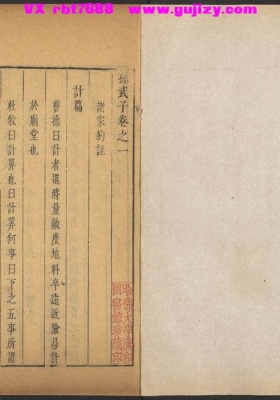 VX rbt7688 www.gujizy.com
孫武子卷之一
諸家約註
計篇
曹操曰計者選將量敵度地料卒遠近險易計
於廟堂也
杜牧曰計算也曰計算何事曰下之五事所謂
哈佛大學漢和
圖書館珍藏印